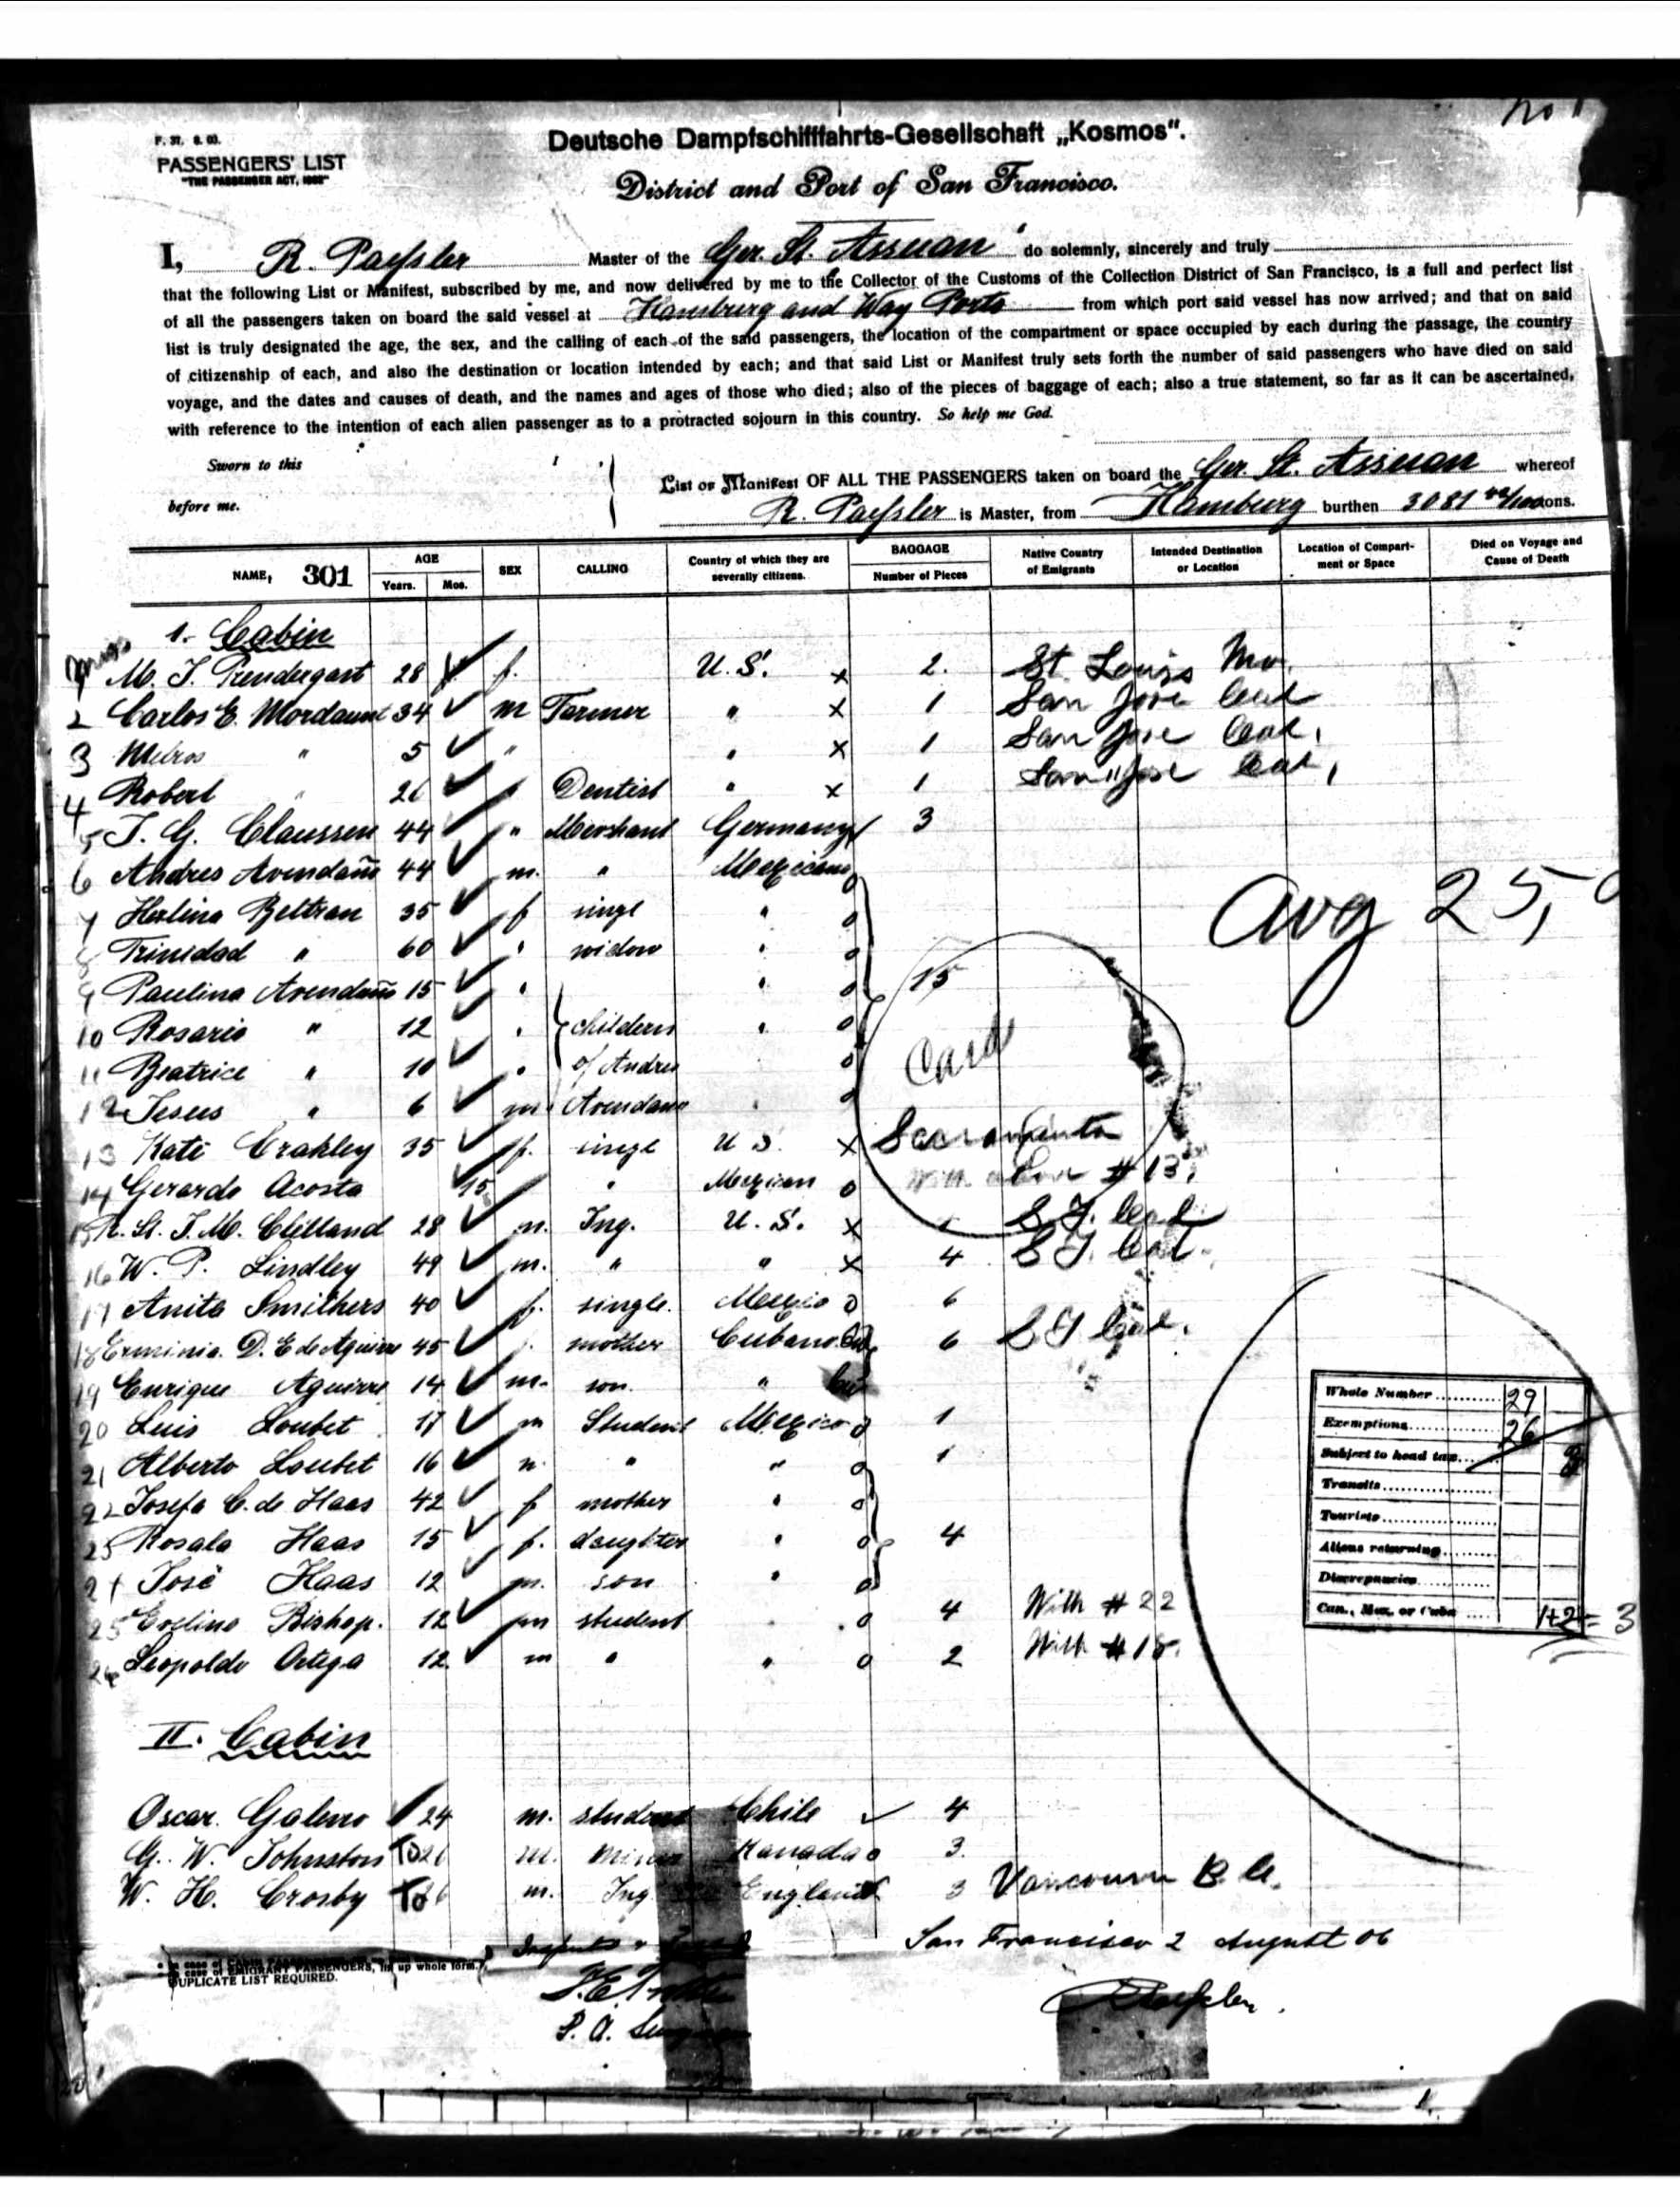 No 1
F. 37. 8. 03.
PASSENGERS' LIST
"THE PASSENGER ACT, 1882"
Deutsche Dampfschifffahrts-Gesellschaft „Kosmos".
District and Port of San Francisco.
I, R. Paeßler Master of the Ger. St. Assuan do solemnly, sincerely and truly
that the following List or Manifest, subscribed by me, and now delivered by me to the Collector of the Customs of the Collection District of San Francisco, is a full and perfect list
of all the passengers taken on board the said vessel at Hamburg and Way Ports from which port said vessel has now arrived; and that on said
list is truly designated the age, the sex, and the calling of each of the said passengers, the location of the compartment or space occupied by each during the passage, the country
of citizenship of each, and also the destination or location intended by each; and that said List or Manifest truly sets forth the number of said passengers who have died on said
voyage, and the dates and causes of death, and the names and ages of those who died; also of the pieces of baggage of each; also a true statement, so far as it can be ascertained,
with reference to the intention of each alien passenger as to a protracted sojourn in this country. So help me God.
Sworn to this
before me.
List or Manifest OF ALL THE PASSENGERS taken on board the Ger. St. Assuan whereof
R. Paeßler is Master, from Hamburg burthen 3081 tons.
NAME, 301 AGE Years. Mos. SEX CALLING Country of which they are severally citizens. BAGGAGE Number of Pieces Native Country of Emigrants Intended Destination or Location Location of Compartment or Space Died on Voyage and Cause of Death
1. Cabin
Miss
1 M. J. Prendergast 28 f. U.S. x 2. St. Louis Mo.
2 Carlos E. Mordaunt 34 m Farmer " x 1 San Jose Cal
3 " 5 " " x 1 San Jose Cal.
4 Robert " 26 Dentist " x 1 San Jose Cal.
5 J. G. Claussen 44 " Merchant Germany 3
6 Andres Avendaño 44 m. " Mexicano
7 Herlina Beltran 35 f singl " o
8 Trinidad " 60 " widow " o
9 Paulina Avendaño 15 " " o 15
10 Rosario " 12 " childern " o
11 Beatrice " 10 " of Andres o Card
12 Jesus " 6 m Avendano " o
Aug 25,
13 Kate Crakley 35 f. singl U S. x Sacramento
14 Gerardo Acosta 15 " Mexican o #13.
15 R. St. J. M. Clelland 28 m. Ing. U.S. x 1 S F. Cal
16 W. P. Lindley 49 m. " " x 4 S F. Cal.
17 Anita Smithers 40 f. single. Mexico o 6
18 Erminia D. E de Aguirre 45 mother Cubano 6 S F Cal.
19 Enrique Aguirre 14 m. son. "
20 Luis Loubet 17 m Student Mexico o 1
21 Alberto Loubet 16 m. " " o 1
22 Josefa C. de Haas 42 f mother " o
23 Rosala Haas 15 f. daughter " o 4
24 José Haas 12 m. son " o
25 Evelino Bishop. 12 m student o 4 With #22
26 Leopoldo Ortega 12. m " " o 2 With #18.
Whole Number 29
Exemptions 26
Subject to head tax 3
Transits
Tourists
Aliens returning
Discrepancies
Can., Mex. or Cuba 1+2 = 3
II. Cabin
Oscar Galeno 24 m. student Chile 4
G. W. Johnston 26 m. Miner Kanada o 3.
W. H. Crosby 26 m. Ing England 3 Vancouver B. C.
San Francisco 2 August 06
In case of EMIGRANT PASSENGERS, fill up whole form.
DUPLICATE LIST REQUIRED.
Paeßler.